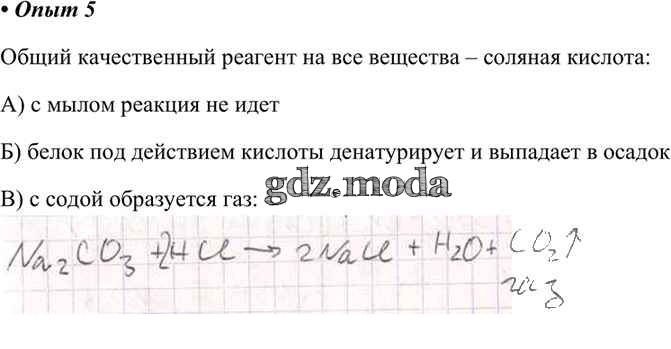 • Опыт 5
Общий качественный реагент на все вещества – соляная кислота:
А) с мылом реакция не идет
Б) белок под действием кислоты денатурирует и выпадает в осадок
В) с содой образуется газ: gdz.moda
Na₂CO₃ + 2HCl → 2NaCl + H₂O + CO₂↑
газ